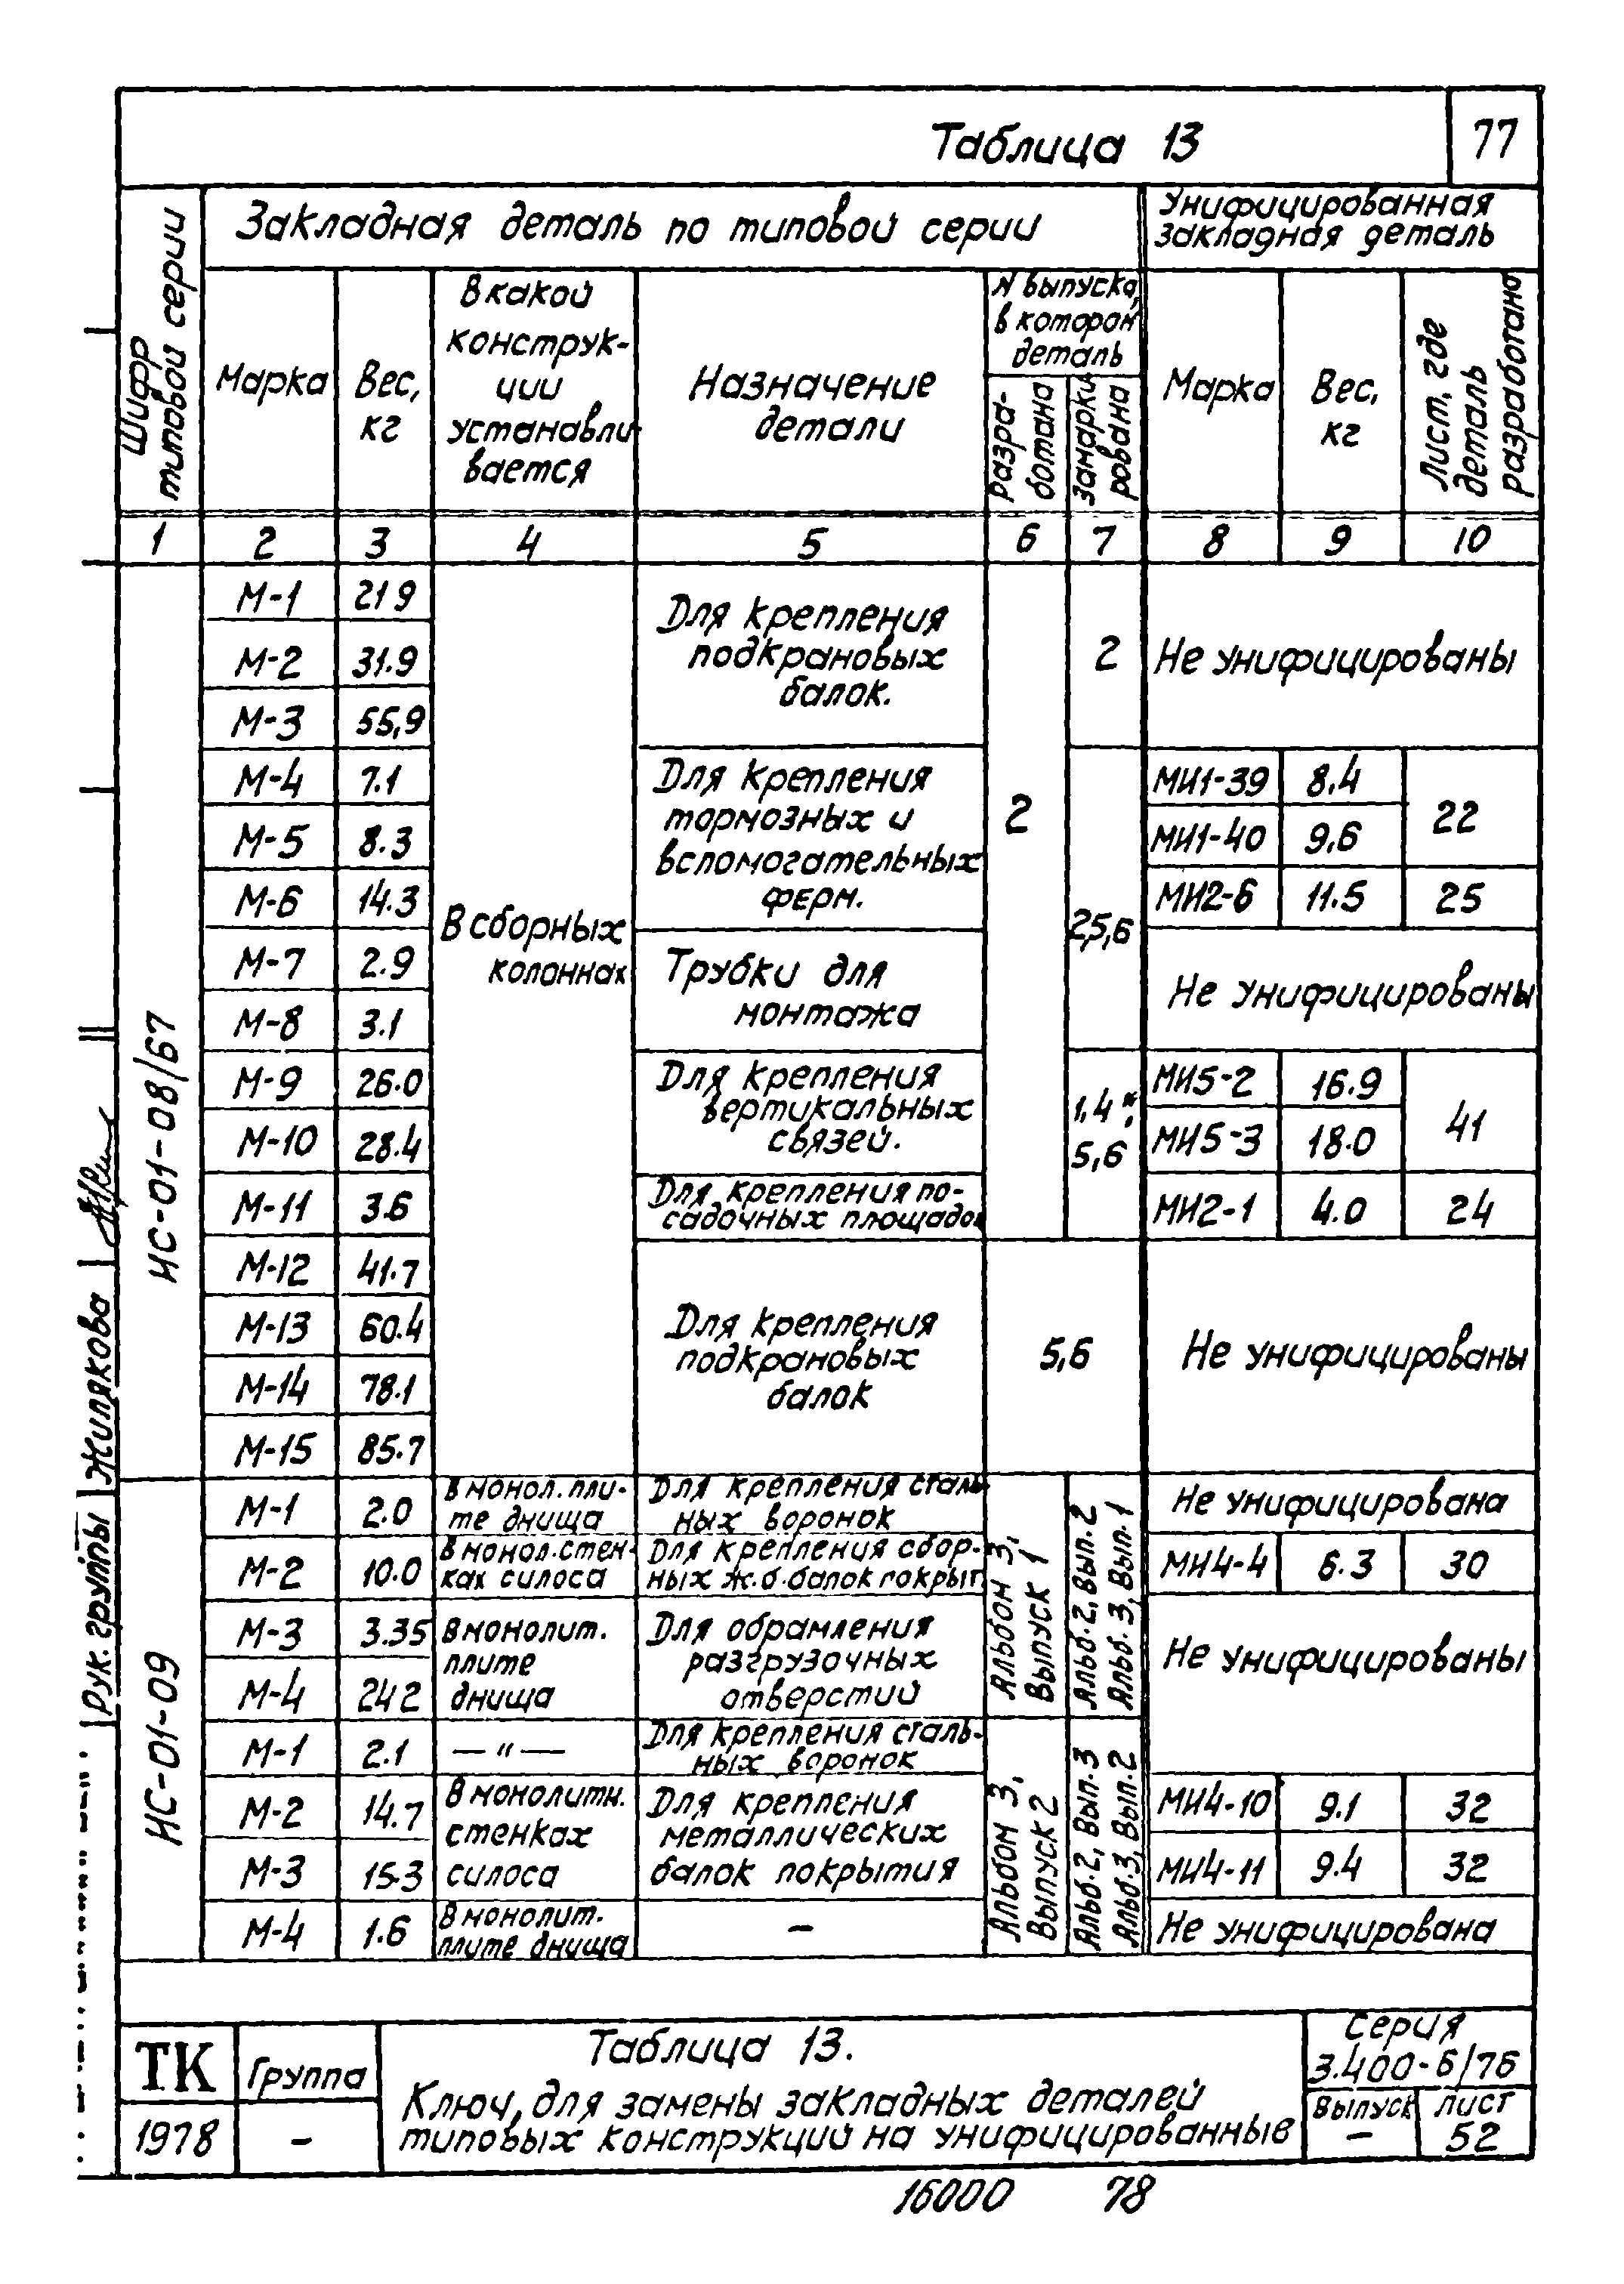 Таблица 13
77
Шифр типовой серии
Закладная деталь по типовой серии
Унифицированная
закладная деталь
Марка
Вес,
кг
В какой
конструк-
ции
устанавли-
вается
Назначение
детали
N выпуска,
в котором
деталь
разра-
ботана
замарки-
рована
Марка
Вес,
кг
Лист, где
деталь
разработана
1 2 3 4 5 6 7 8 9 10
ИС-01-08/67
М-1 21 9
М-2 31.9
М-3 55,9
М-4 7.1
М-5 8.3
М-6 14.3
М-7 2.9
М-8 3.1
М-9 26.0
М-10 28.4
М-11 3.6
М-12 41.7
М-13 60.4
М-14 78.1
М-15 85.7
В сборных
колоннах
Для крепления
подкрановых
балок.
Для крепления
тормозных и
вспомогательных
ферм.
Трубки для
монтажа
Для крепления
вертикальных
связей.
Для крепления по-
садочных площадок
Для крепления
подкрановых
балок
2
2
2,5,6
1,4
5,6
5,6
Не унифицированы
МИ1-39 8.4
22
МИ1-40 9,6
МИ2-6 11.5 25
Не унифицированы
МИ5-2 16.9
41
МИ5-3 18.0
МИ2-1 4.0 24
Не унифицированы
ИС-01-09
М-1 2.0
М-2 10.0
М-3 3.35
М-4 24 2
М-1 2.1
М-2 14.7
М-3 15.3
М-4 1.6
В монол. пли-
те днища
В монол. стен-
ках силоса
В монолит.
плите
днища
— " —
В монолитн.
стенках
силоса
В монолит.
плите днища
Для крепления сталь-
ных воронок
Для крепления сбор-
ных ж.б. балок покрыт
Для обрамления
разгрузочных
отверстий
Для крепления сталь-
ных воронок
Для крепления
металлических
балок покрытия
–
Альбом 3,
Выпуск 1
Альб. 2, Вып. 2
Альб. 3, Вып. 1
Альбом 3,
Выпуск 2
Альб. 2, Вып. 3
Альб. 3, Вып. 2
Не унифицирована
МИ4-4 6.3 30
Не унифицированы
МИ4-10 9.1 32
МИ4-11 9.4 32
Не унифицирована
Рук. группы Жилякова
ТК
1978
Группа
–
Таблица 13.
Ключ, для замены закладных деталей
типовых конструкций на унифицированные
Серия
3.400-6/76
Выпуск
–
Лист
52
16000 78